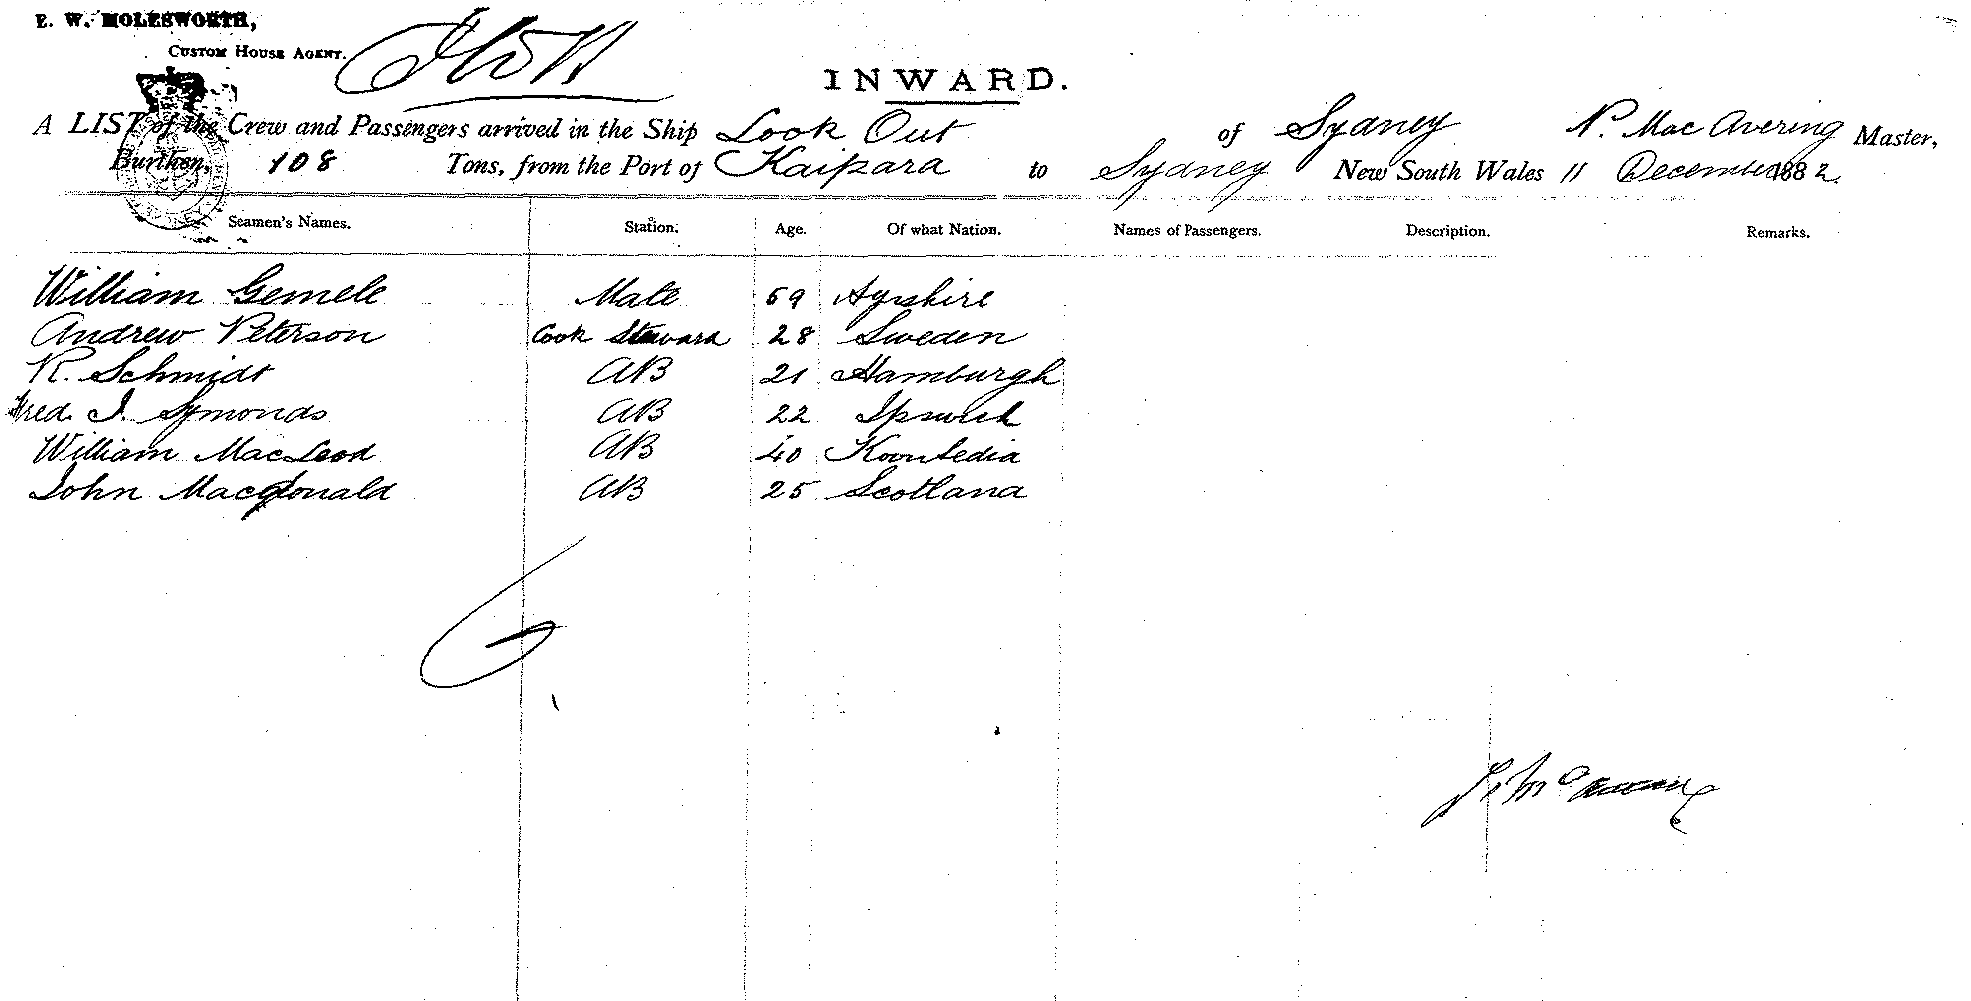 E. W. MOLESWORTH,
CUSTOM HOUSE AGENT.
INWARD.
A LIST of the Crew and Passengers arrived in the Ship Look Out of Sydney P. Mac Avering Master,
Burthen, 108 Tons, from the Port of Kaipara to Sydney New South Wales 11 December 1882.
Seamen's Names. Station. Age. Of what Nation. Names of Passengers. Description. Remarks.
William Gemele Mate 59 Ayrshire
Andrew Peterson Cook Steward 28 Sweden
R. Schmidt AB 21 Hamburgh
Fred. J. Symonds AB 22 Ipswich
William MacLeod AB 40
John Macdonald AB 25 Scotland